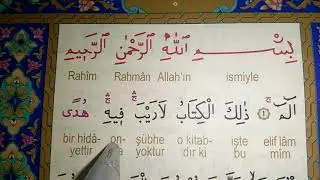 بِسْمِ اللّٰهِ الرَّحْمٰنِ الرَّحِيمِ
Rahîm Rahmân Allah'ın ismiyle
الٓمٓ ۝١ ذٰلِكَ الْكِتَابُ لَارَيْبَۛ فِيهِۛ هُدًى
bir hidâ- on- şübhe o kitab- işte elif lâm
yettir yoktur dır ki bu mîm